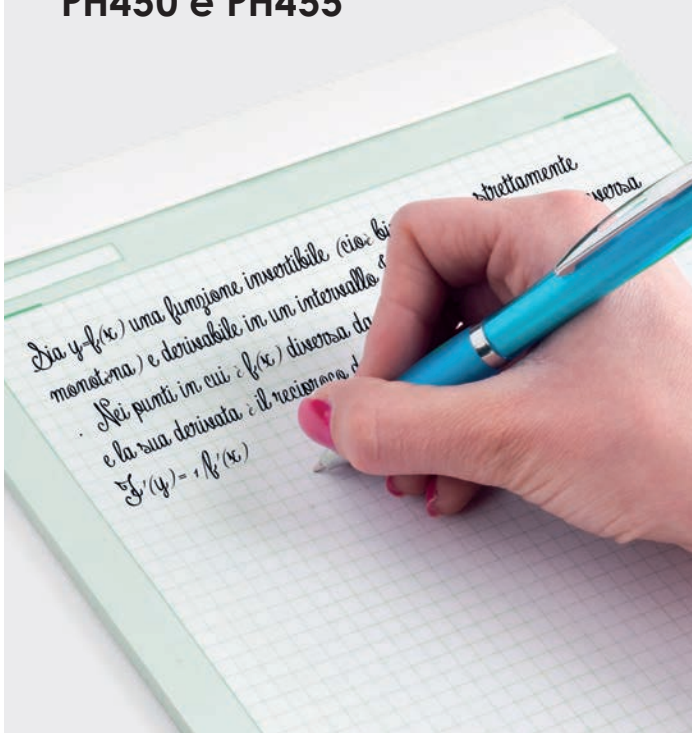 PH450 e PH455
Sia y=f(x) una funzione invertibile (cioè bi strettamente
monotona) e derivabile in un intervallo iversa
. Nei punti in cui è f(x) diversa da
e la sua derivata è il reciproco d
F'(y)= 1 f'(x)